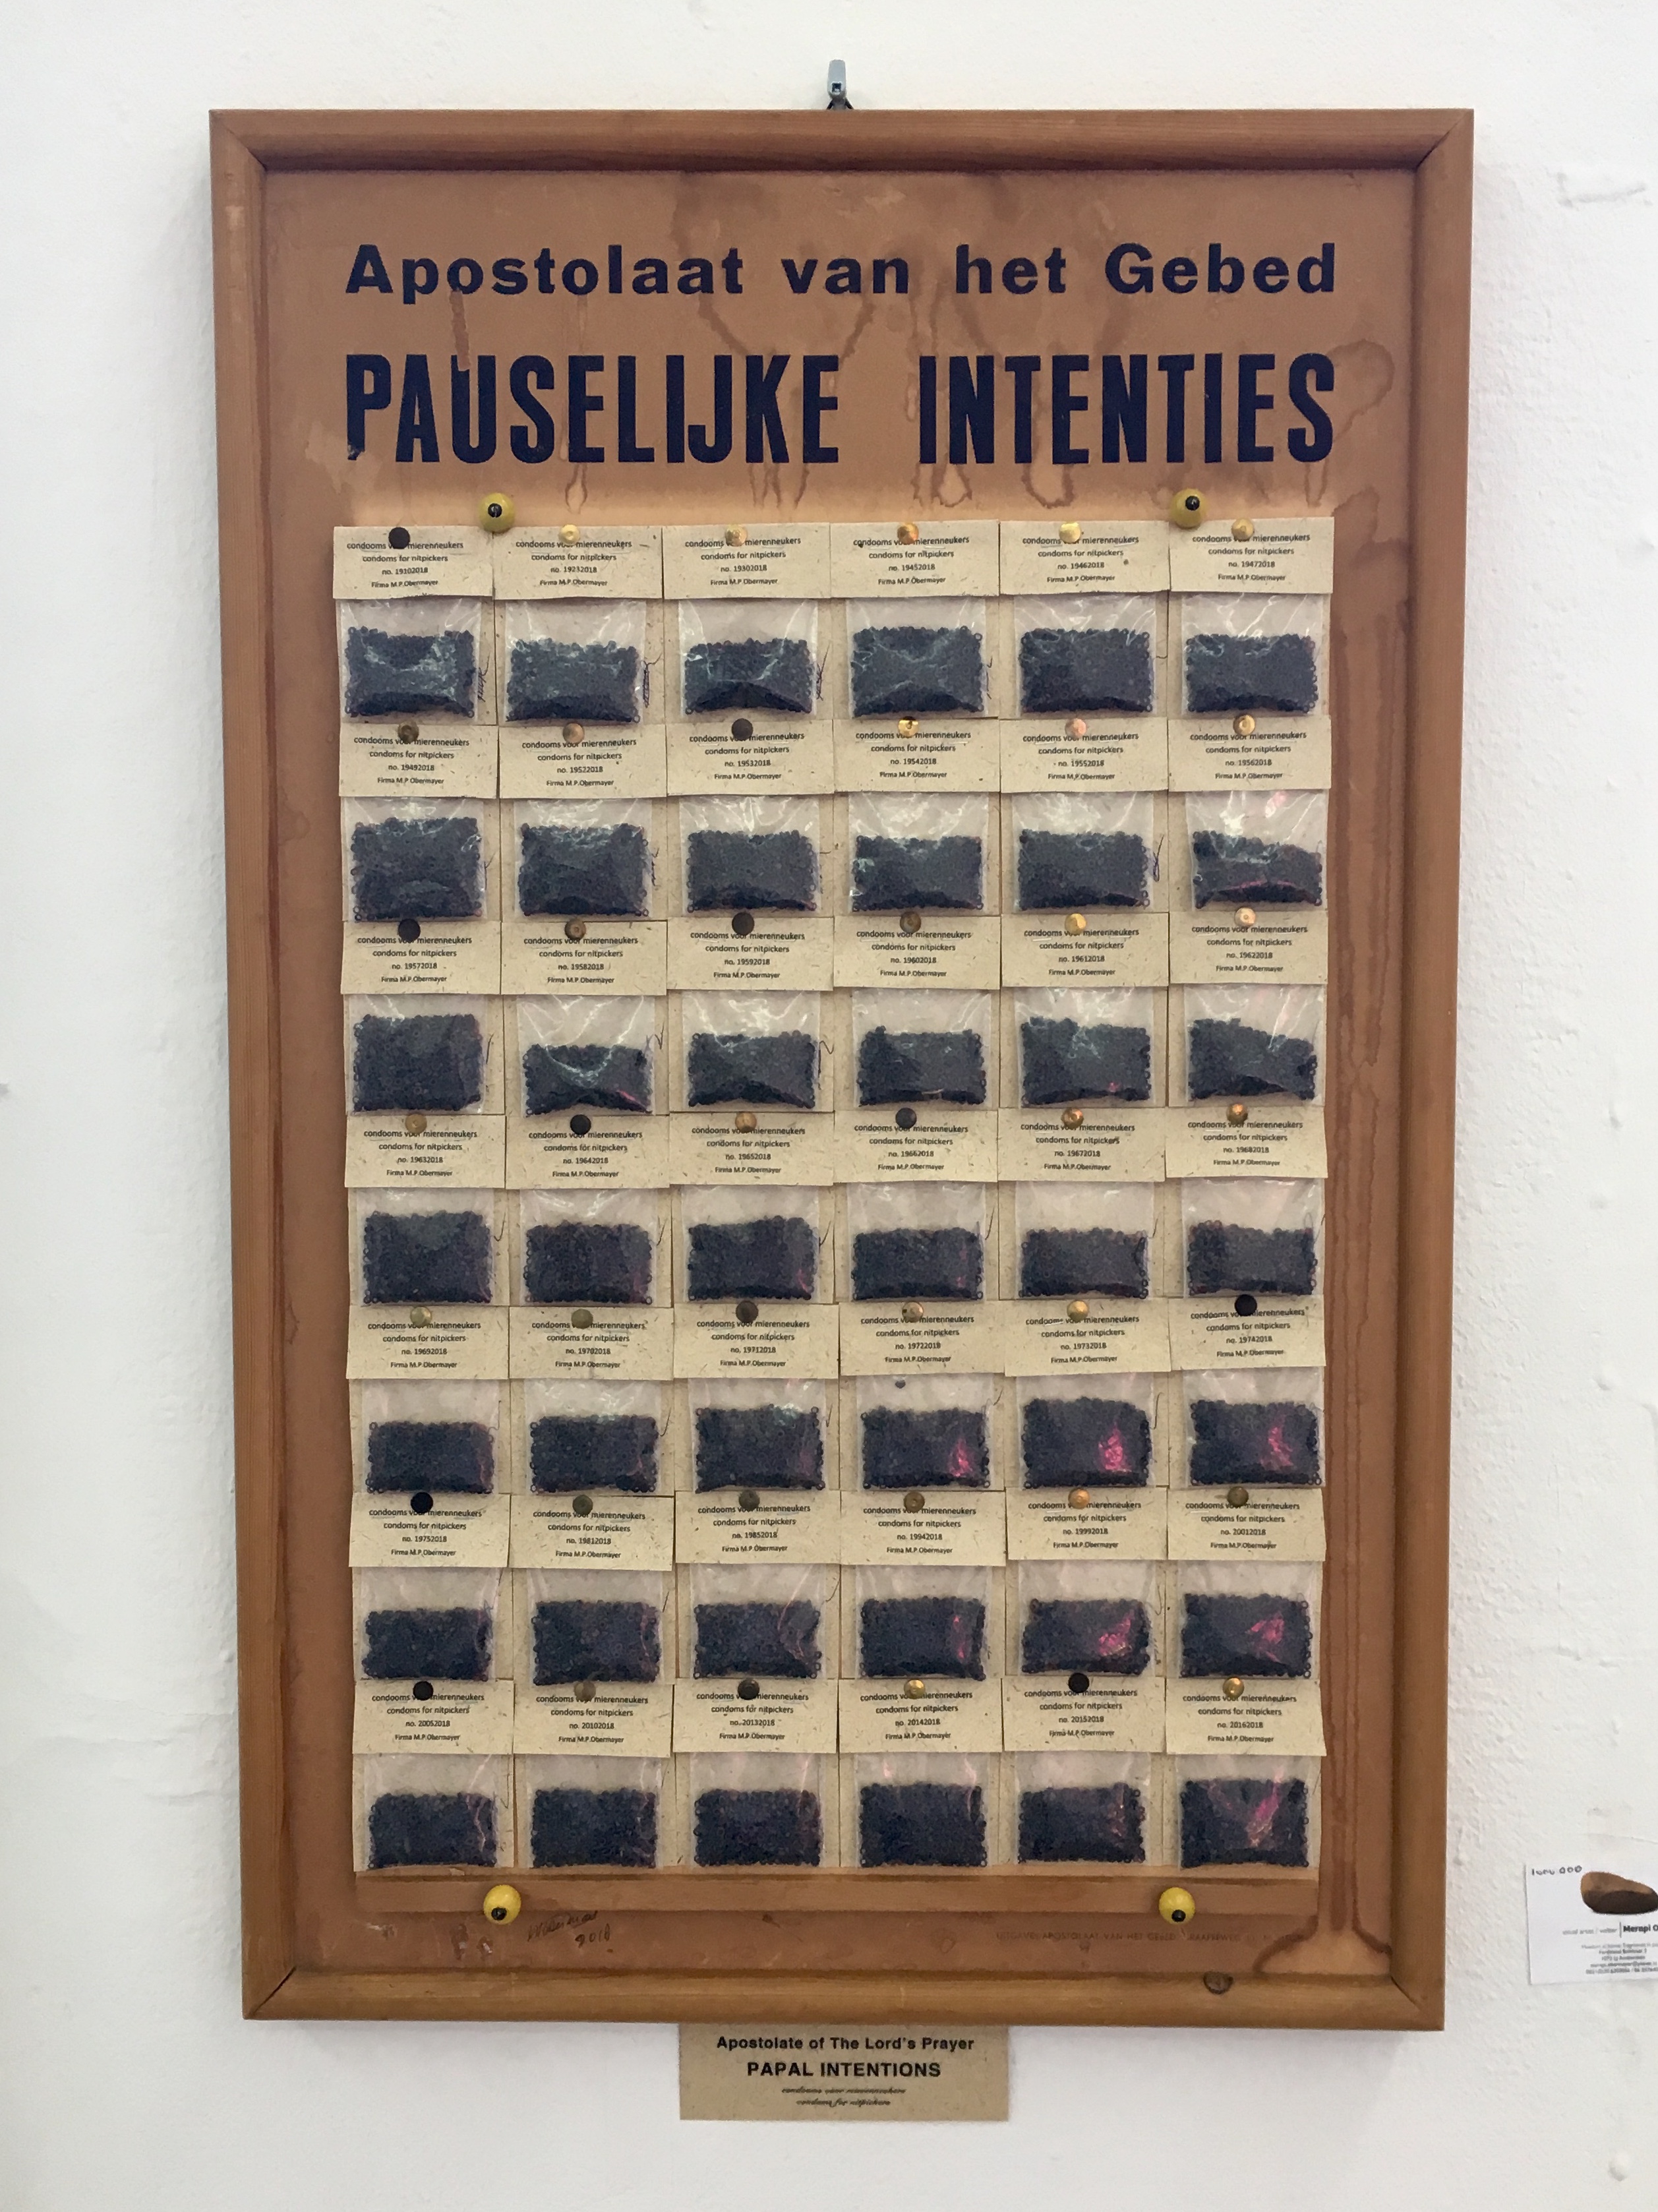 Apostolaat van het Gebed
PAUSELIJKE INTENTIES
condooms voor mierenneukers
condoms for nitpickers
no. 19102018
Firma M.P.Obermayer
condooms voor mierenneukers
condoms for nitpickers
no. 19232018
Firma M.P.Obermayer
condooms voor mierenneukers
condoms for nitpickers
no. 19302018
Firma M.P.Obermayer
condooms voor mierenneukers
condoms for nitpickers
no. 19452018
Firma M.P.Obermayer
condooms voor mierenneukers
condoms for nitpickers
no. 19462018
Firma M.P.Obermayer
condooms voor mierenneukers
condoms for nitpickers
no. 19472018
Firma M.P.Obermayer
condooms voor mierenneukers
condoms for nitpickers
no. 19492018
Firma M.P.Obermayer
condooms voor mierenneukers
condoms for nitpickers
no. 19522018
Firma M.P.Obermayer
condooms voor mierenneukers
condoms for nitpickers
no. 19532018
Firma M.P.Obermayer
condooms voor mierenneukers
condoms for nitpickers
no. 19542018
Firma M.P.Obermayer
condooms voor mierenneukers
condoms for nitpickers
no. 19552018
Firma M.P.Obermayer
condooms voor mierenneukers
condoms for nitpickers
no. 19562018
Firma M.P.Obermayer
condooms voor mierenneukers
condoms for nitpickers
no. 19572018
Firma M.P.Obermayer
condooms voor mierenneukers
condoms for nitpickers
no. 19582018
Firma M.P.Obermayer
condooms voor mierenneukers
condoms for nitpickers
no. 19592018
Firma M.P.Obermayer
condooms voor mierenneukers
condoms for nitpickers
no. 19602018
Firma M.P.Obermayer
condooms voor mierenneukers
condoms for nitpickers
no. 19612018
Firma M.P.Obermayer
condooms voor mierenneukers
condoms for nitpickers
no. 19622018
Firma M.P.Obermayer
condooms voor mierenneukers
condoms for nitpickers
no. 19632018
Firma M.P.Obermayer
condooms voor mierenneukers
condoms for nitpickers
no. 19642018
Firma M.P.Obermayer
condooms voor mierenneukers
condoms for nitpickers
no. 19652018
Firma M.P.Obermayer
condooms voor mierenneukers
condoms for nitpickers
no. 19662018
Firma M.P.Obermayer
condooms voor mierenneukers
condoms for nitpickers
no. 19672018
Firma M.P.Obermayer
condooms voor mierenneukers
condoms for nitpickers
no. 19682018
Firma M.P.Obermayer
condooms voor mierenneukers
condoms for nitpickers
no. 19692018
Firma M.P.Obermayer
condooms voor mierenneukers
condoms for nitpickers
no. 19702018
Firma M.P.Obermayer
condooms voor mierenneukers
condoms for nitpickers
no. 19712018
Firma M.P.Obermayer
condooms voor mierenneukers
condoms for nitpickers
no. 19722018
Firma M.P.Obermayer
condooms voor mierenneukers
condoms for nitpickers
no. 19732018
Firma M.P.Obermayer
condooms voor mierenneukers
condoms for nitpickers
no. 19742018
Firma M.P.Obermayer
condooms voor mierenneukers
condoms for nitpickers
no. 19752018
Firma M.P.Obermayer
condooms voor mierenneukers
condoms for nitpickers
no. 19812018
Firma M.P.Obermayer
condooms voor mierenneukers
condoms for nitpickers
no. 19852018
Firma M.P.Obermayer
condooms voor mierenneukers
condoms for nitpickers
no. 19942018
Firma M.P.Obermayer
condooms voor mierenneukers
condoms for nitpickers
no. 19992018
Firma M.P.Obermayer
condooms voor mierenneukers
condoms for nitpickers
no. 20012018
Firma M.P.Obermayer
condooms voor mierenneukers
condoms for nitpickers
no. 20052018
Firma M.P.Obermayer
condooms voor mierenneukers
condoms for nitpickers
no. 20102018
Firma M.P.Obermayer
condooms voor mierenneukers
condoms for nitpickers
no. 20132018
Firma M.P.Obermayer
condooms voor mierenneukers
condoms for nitpickers
no. 20142018
Firma M.P.Obermayer
condooms voor mierenneukers
condoms for nitpickers
no. 20152018
Firma M.P.Obermayer
condooms voor mierenneukers
condoms for nitpickers
no. 20162018
Firma M.P.Obermayer
2018
APOSTOLAAT VAN HET GEBED
Apostolate of The Lord's Prayer
PAPAL INTENTIONS
condooms voor mierenneukers
condoms for nitpickers
Merapi O